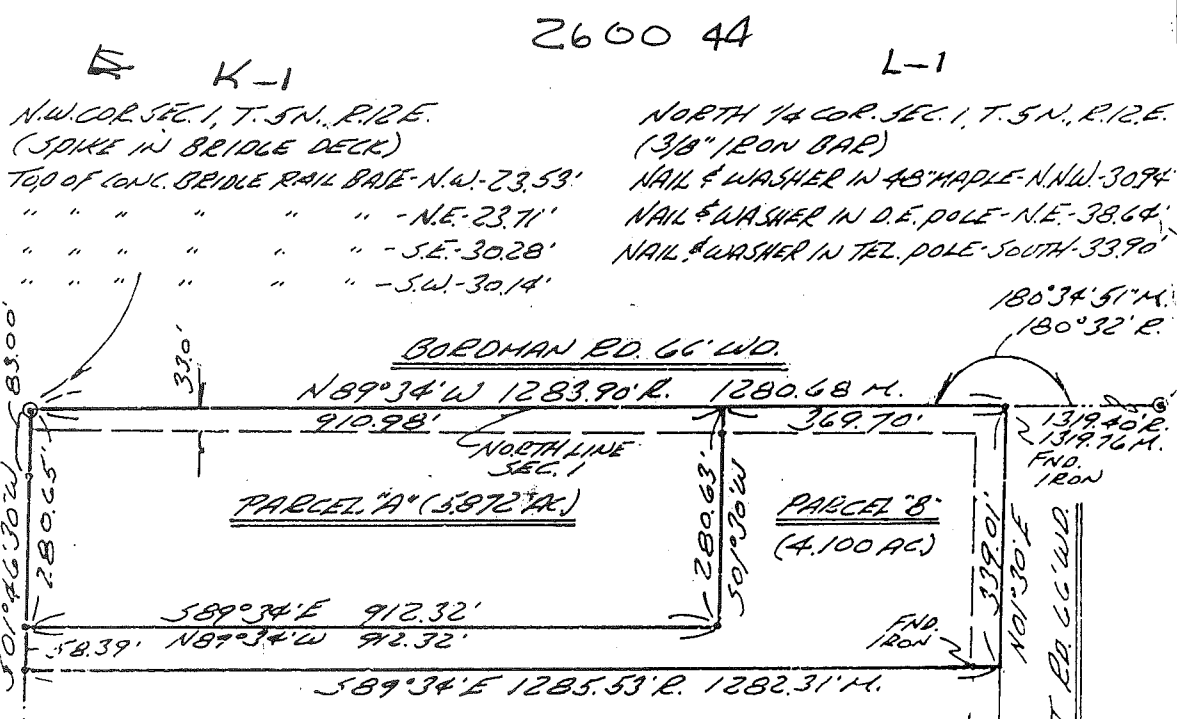 2600 44
K-1
N.W. COR. SEC. 1, T. 5 N., R. 12 E.
(SPIKE IN BRIDGE DECK)
TOP OF CONC. BRIDLE RAIL BASE - N.W. - 23.53'
" " " " " " - N.E. - 23.71'
" " " " " " - S.E. - 30.28'
" " " " " " - S.W. - 30.14'
L-1
NORTH 1/4 COR. SEC. 1, T. 5 N., R. 12 E.
(3/8" IRON BAR)
NAIL & WASHER IN 48" MAPLE - N.N.W. - 30.94'
NAIL & WASHER IN D.E. POLE - N.E. - 38.64'
NAIL & WASHER IN TEL. POLE - SOUTH - 33.90'
180°34'51" M.
180°32' R.
BORDMAN RD. 66' WD.
83.00'
33.0'
N89°34'W 1283.90' R. 1280.68 M.
910.98'
369.70'
1319.40' R.
1319.76 M.
FND.
IRON
NORTH LINE
SEC. 1
S01°46'30"W
280.65'
PARCEL "A" (5.872 AC.)
280.63'
S01°30'W
PARCEL "B"
(4.100 AC.)
339.01'
N01°30'E
T RD. 66' WD.
S89°34'E 912.32'
N89°34'W 912.32'
58.39'
FND.
IRON
S89°34'E 1285.53' R. 1282.31' M.